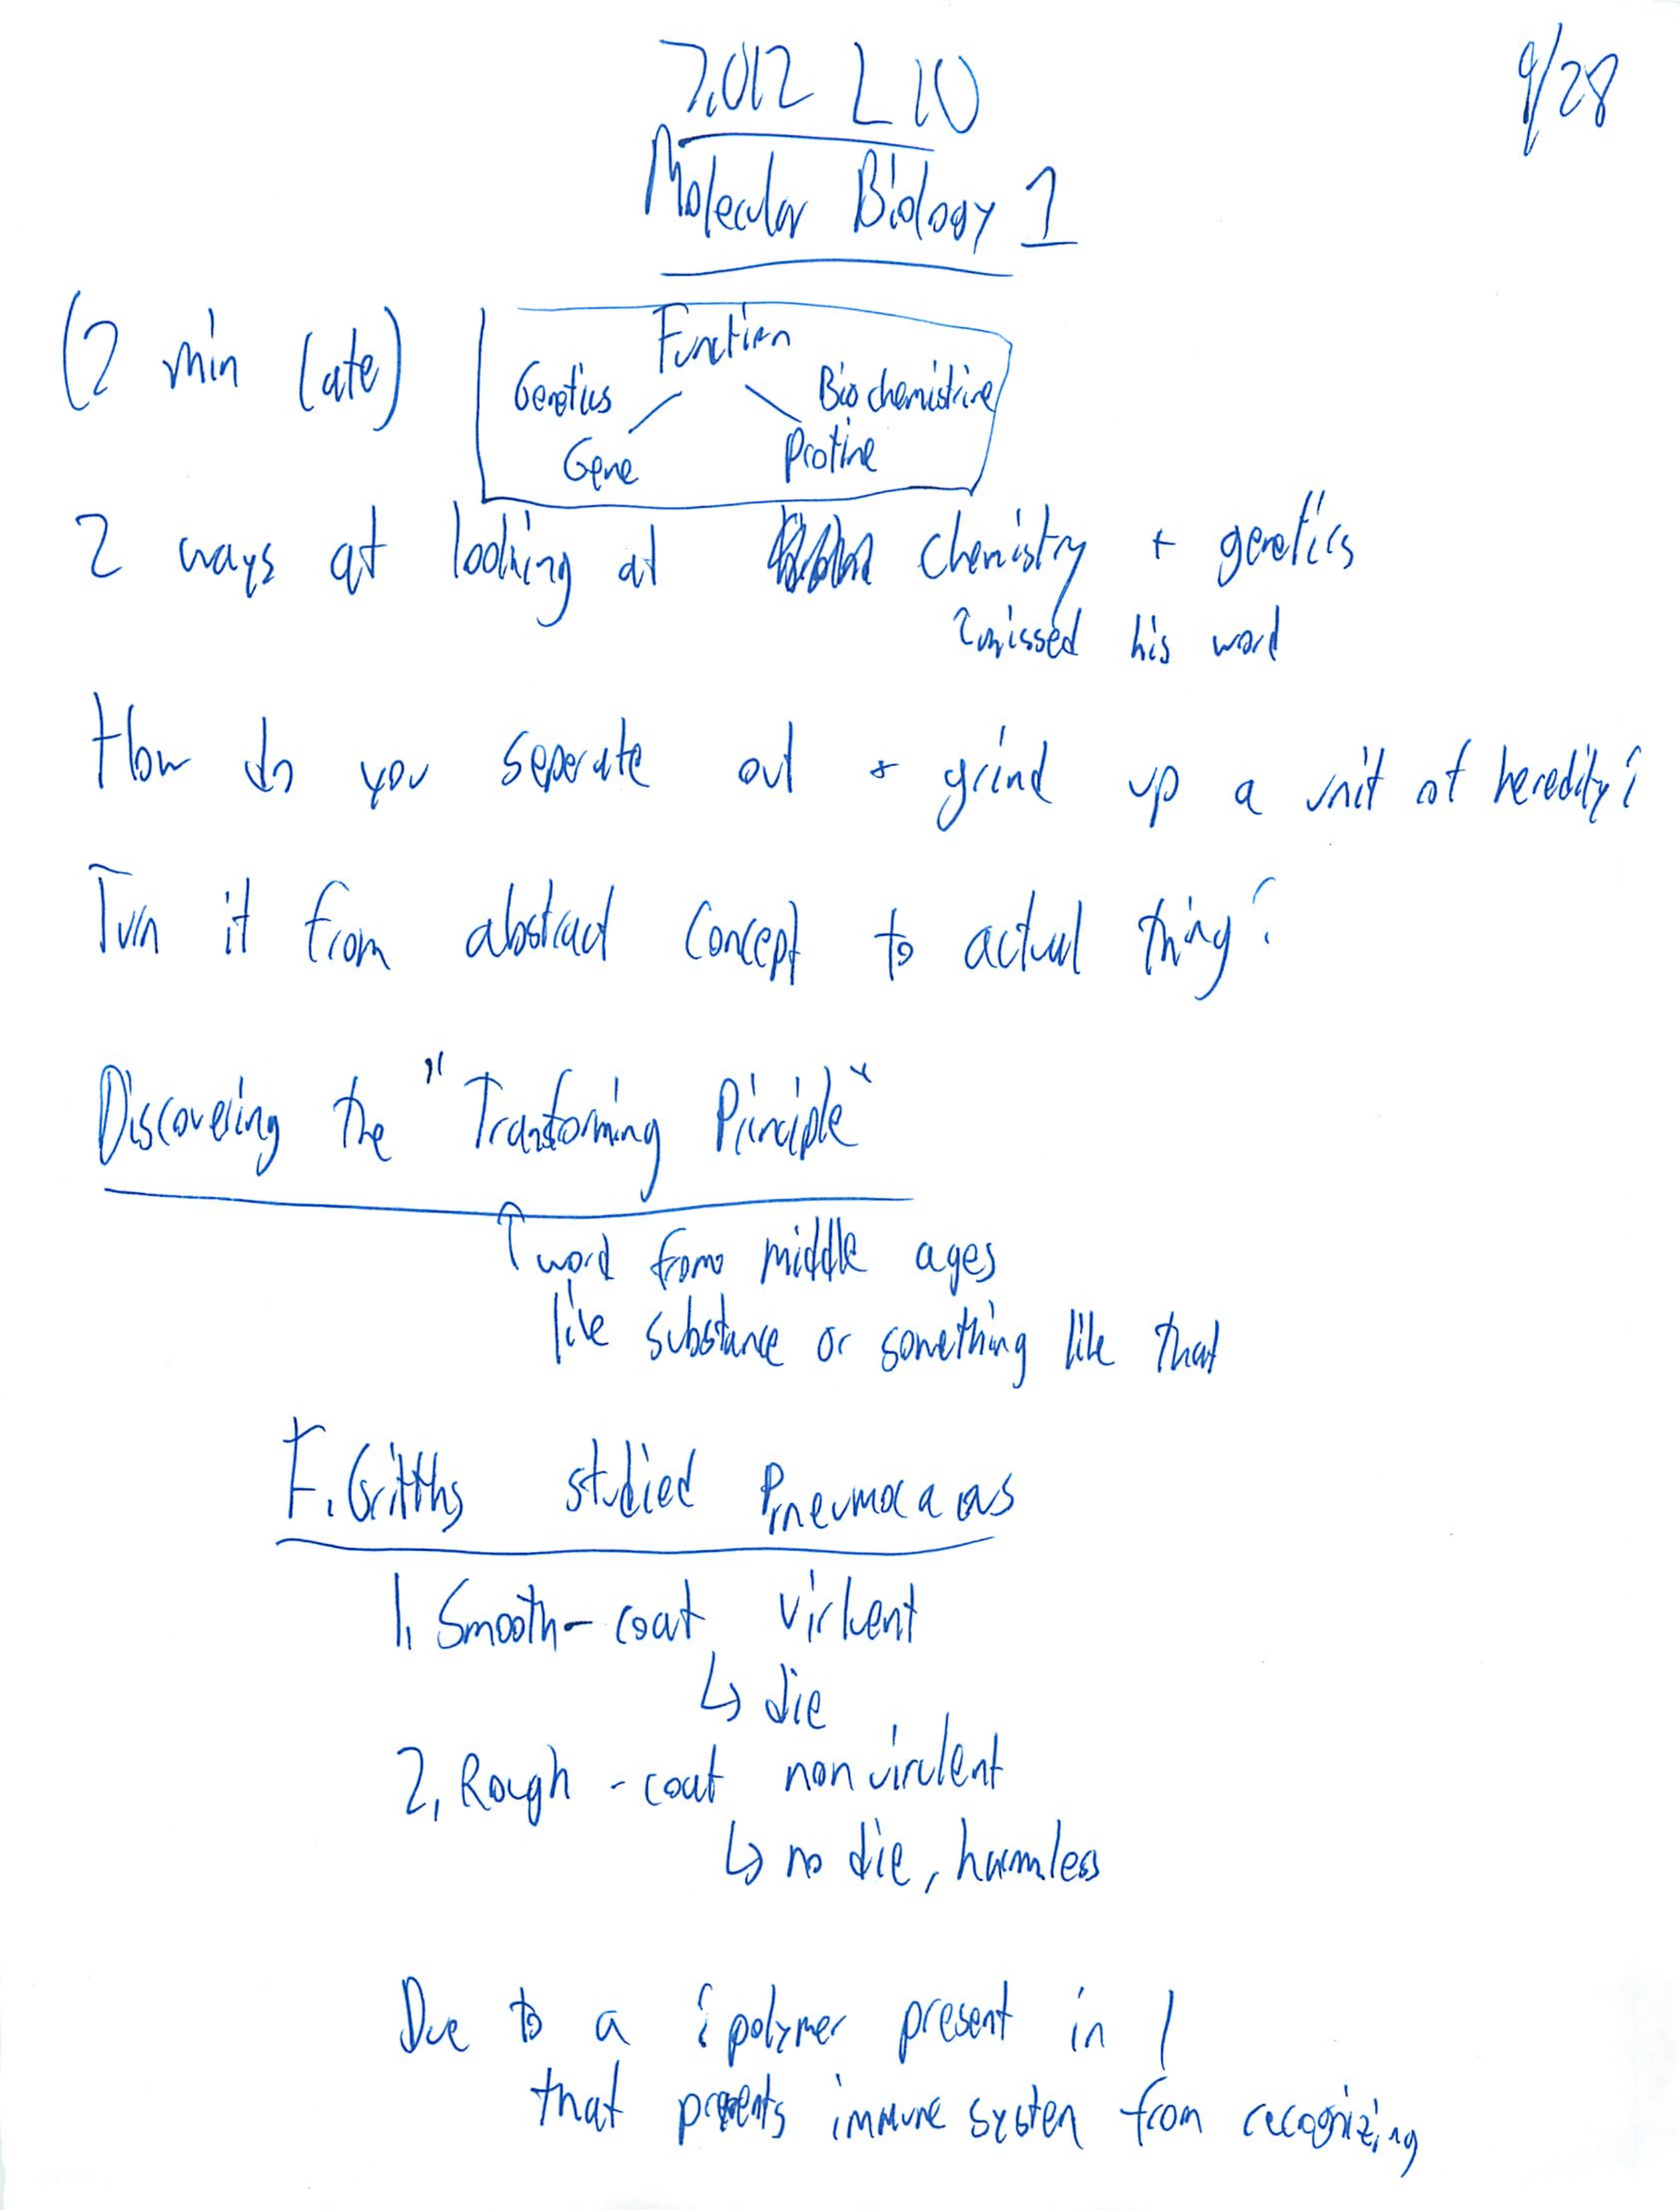 7.012 L10
9/28
Molecular Biology 1
(2 min late)
Function
Genetics
Biochemistire
Gene
Protine
2 ways at looking at chemistry + genetics
missed his word
How do you seperate out + grind up a unit of heredity?
Turn it from abstract concept to actual thing?
Discovering the "Transforming Principle"
↑ word from middle ages
like substance or something like that
F. Griffths studied
1. Smooth-coat virluent
↳ die
2. Rough-coat nonvirulent
↳ no die, harmless
Due to a ? polymer present in 1
that prevents immune system from recognizing